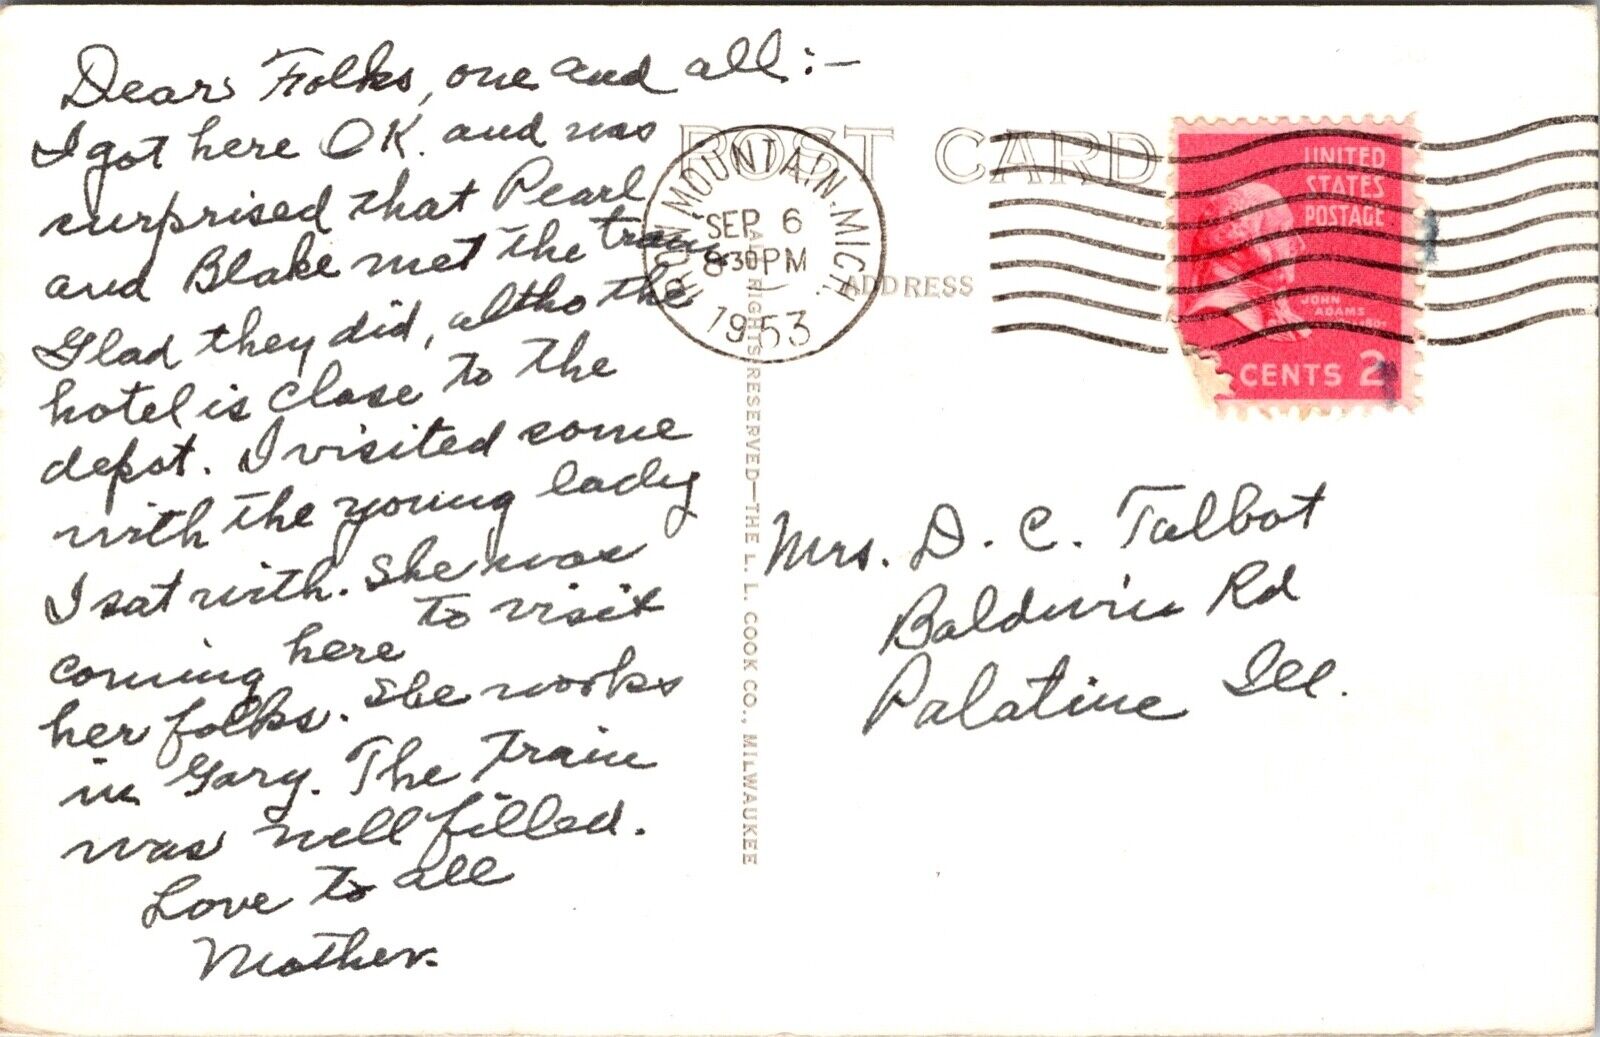 Dear Folks, one and all:-
I got here OK. and was
surprised that Pearl
and Blake met the train
Glad they did, altho the
hotel is close to the
depot. I visited some
with the young lady
I sat with. She was
coming here to visit
her folks. She works
in Gary. The train
was well filled.
Love to all
Mother.
POST CARD
IRON MOUNTAIN. MICH.
SEP 6
8 30 PM
1953
ADDRESS
UNITED
STATES
POSTAGE
JOHN
ADAMS
CENTS 2
ALL RIGHTS RESERVED—THE L. L. COOK CO., MILWAUKEE
Mrs. D. C. Talbot
Baldwin Rd
Palatine Ill.